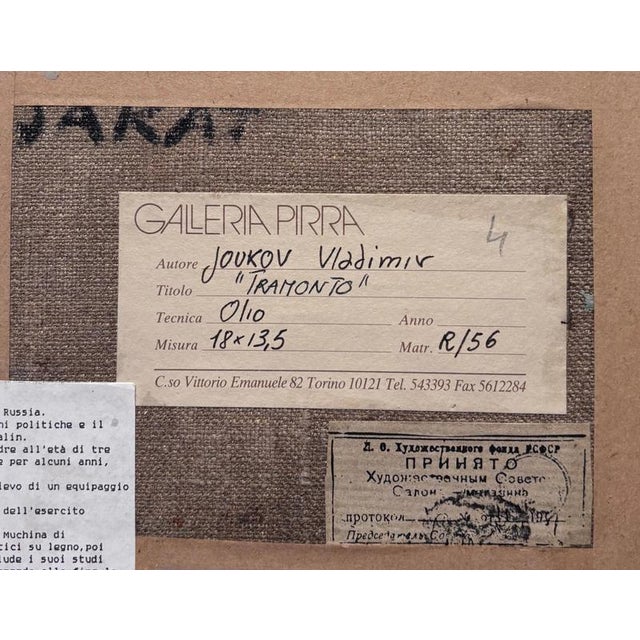 GALLERIA PIRRA
4
Autore JOUKOV Vladimir
Titolo "TRAMONTO"
Tecnica Olio Anno
Misura 18x13,5 Matr. R/56
C.so Vittorio Emanuele 82 Torino 10121 Tel. 543393 Fax 5612284
Russia.
ni politiche e il
alin.
dre all'età di tre
e per alcuni anni,
ievo di un equipaggio
dell'esercito
Muchina di
tici su legno,poi
lude i suoi studi
Л. О. Художественного фонда РСФСР
ПРИНЯТО
Художественным Совето
Салон
протокол
Председатель Со